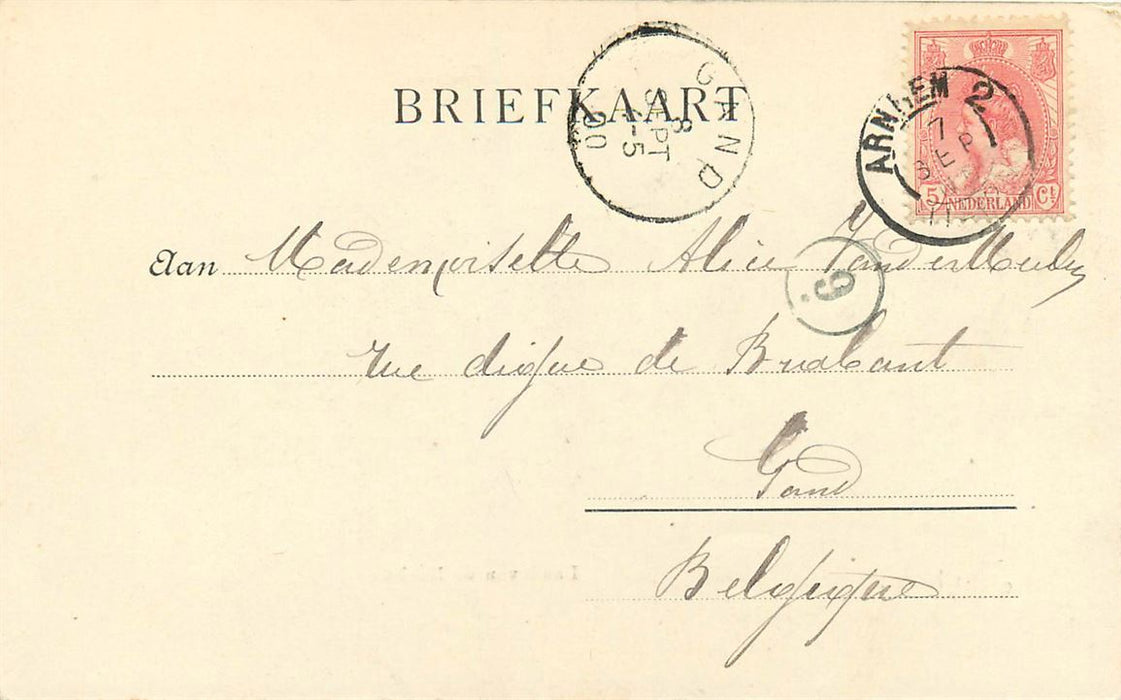 BRIEFKAART
GAND
8
SEPT
4-5
00
ARNHEM 2
7
SEP
5 NEDERLAND Ct
Aan Mademoiselle Alice VanderMeulen
9
rue digue de Brabant
Gand
Belgique